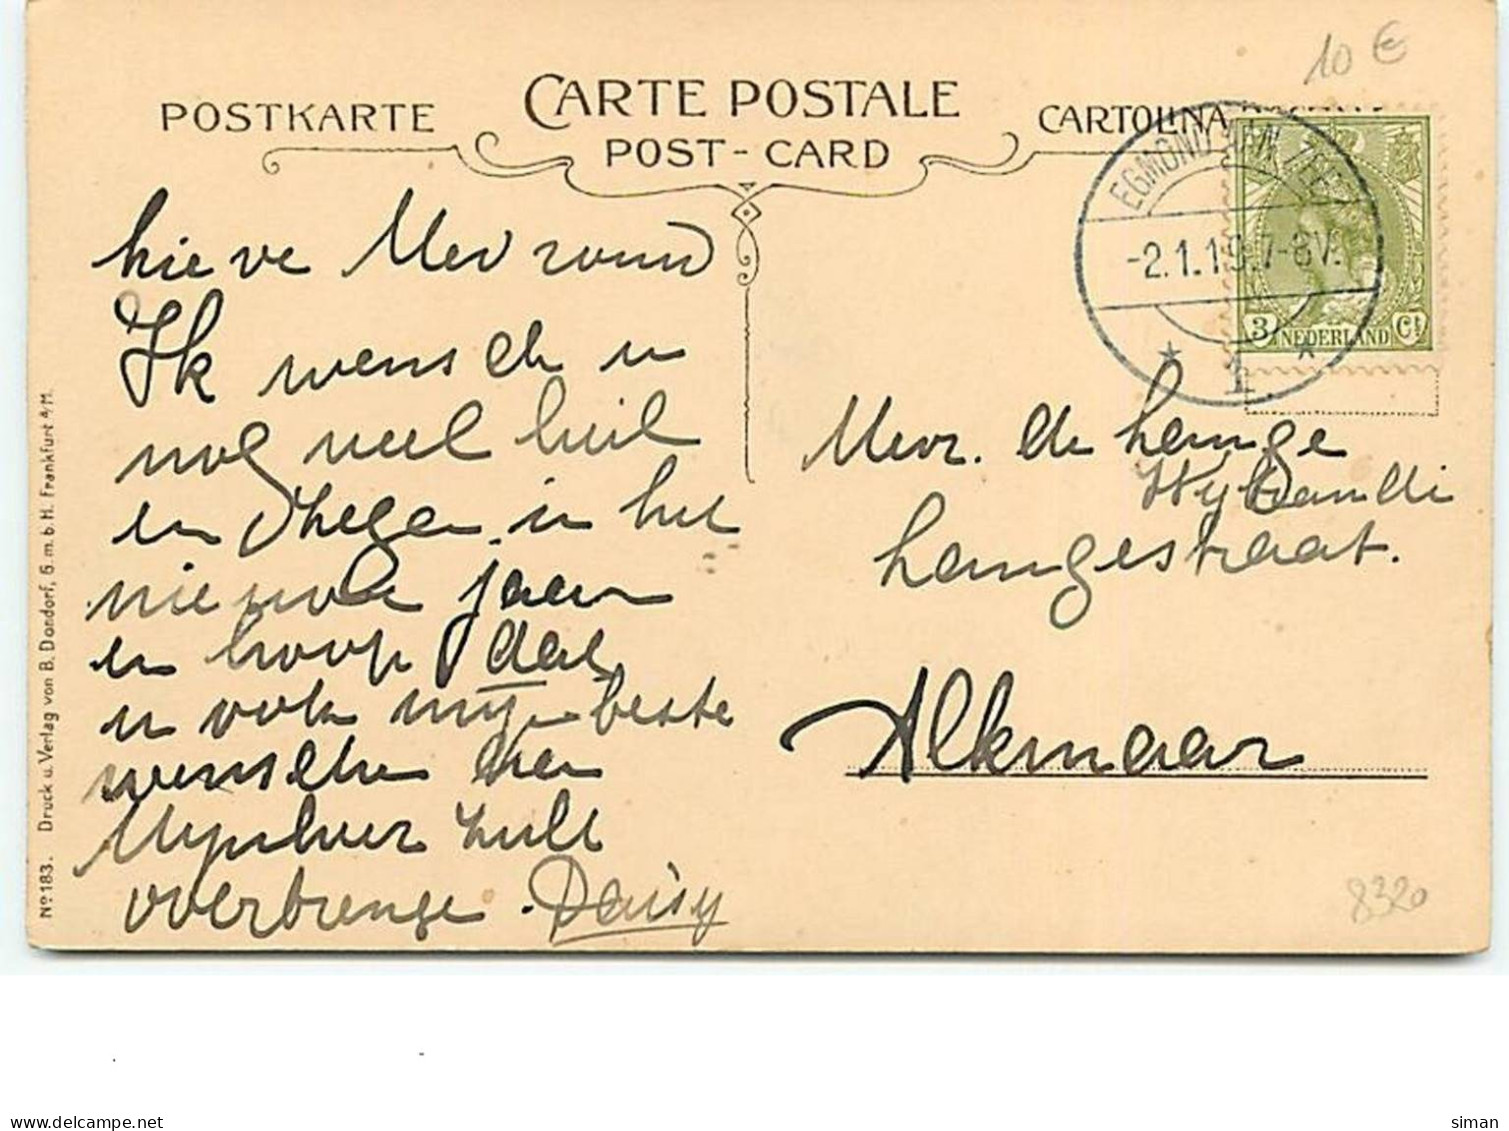 10 €
POSTKARTE
CARTE POSTALE
POST-CARD
CARTOLINA
EGMOND AAN ZEE
-2.1.19.7-8V.
1
3 NEDERLAND Ct
Lieve Mevrouw
Ik wensch u
nog veel heil
en zegen in het
nieuwe jaar
en hoop dat
u ook mijn beste
wenschen aan
Mijnheer zult
overbrengen. Daisy
Mevr. de Lange
Wybrandi
Langestraat.
Alkmaar
8320
No 183. Druck u. Verlag von B. Dondorf, G.m.b.H. Frankfurt a/M.
delcampe.net
siman